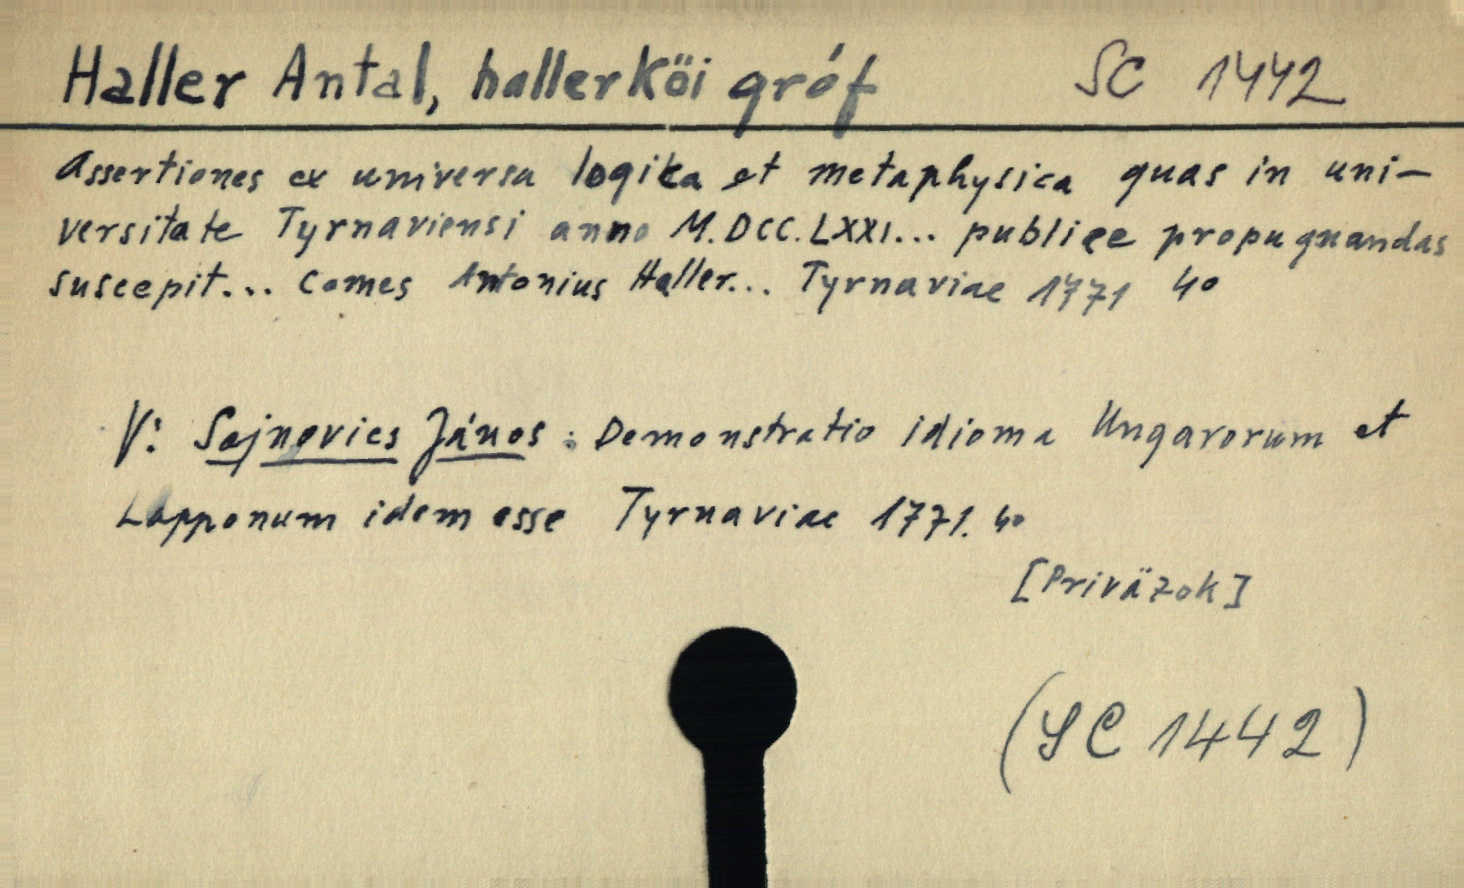 Haller Antal, hallerköi gróf SC 1442
Assertiones ex universa logika et metaphysica quas in uni-
versitate Tyrnaviensi anno M.DCC.LXXI... publice propugnandas
suscepit... Comes Antonius Haller... Tyrnaviae 1771 4o
V: Sajnovics János: Demonstratio idioma Ungarorum et
Lapponum idem esse Tyrnaviae 1771. 4o
[Priväzok]
(SC 1442)